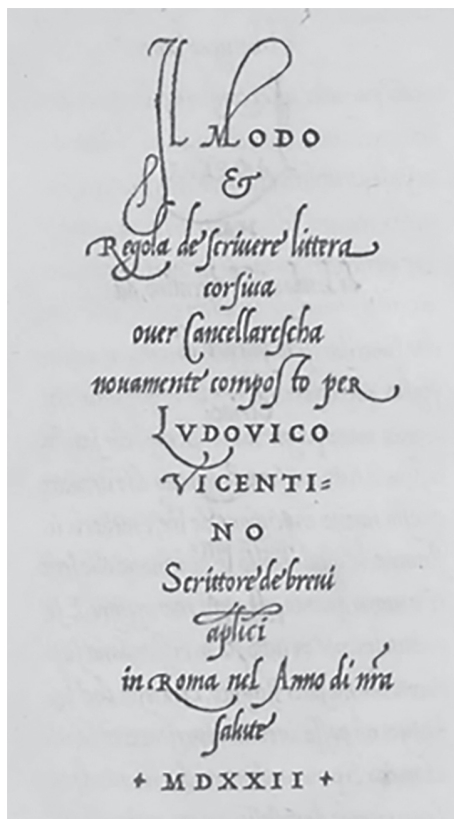 IL MODO
&
Regola de scriuere littera
corsiua
ouer Cancellarescha
nouamente composto per
LVDOVICO
VICENTI=
NO
Scrittore de breui
aplici
in Roma nel Anno di nr̃a
salute
+ MDXXII +